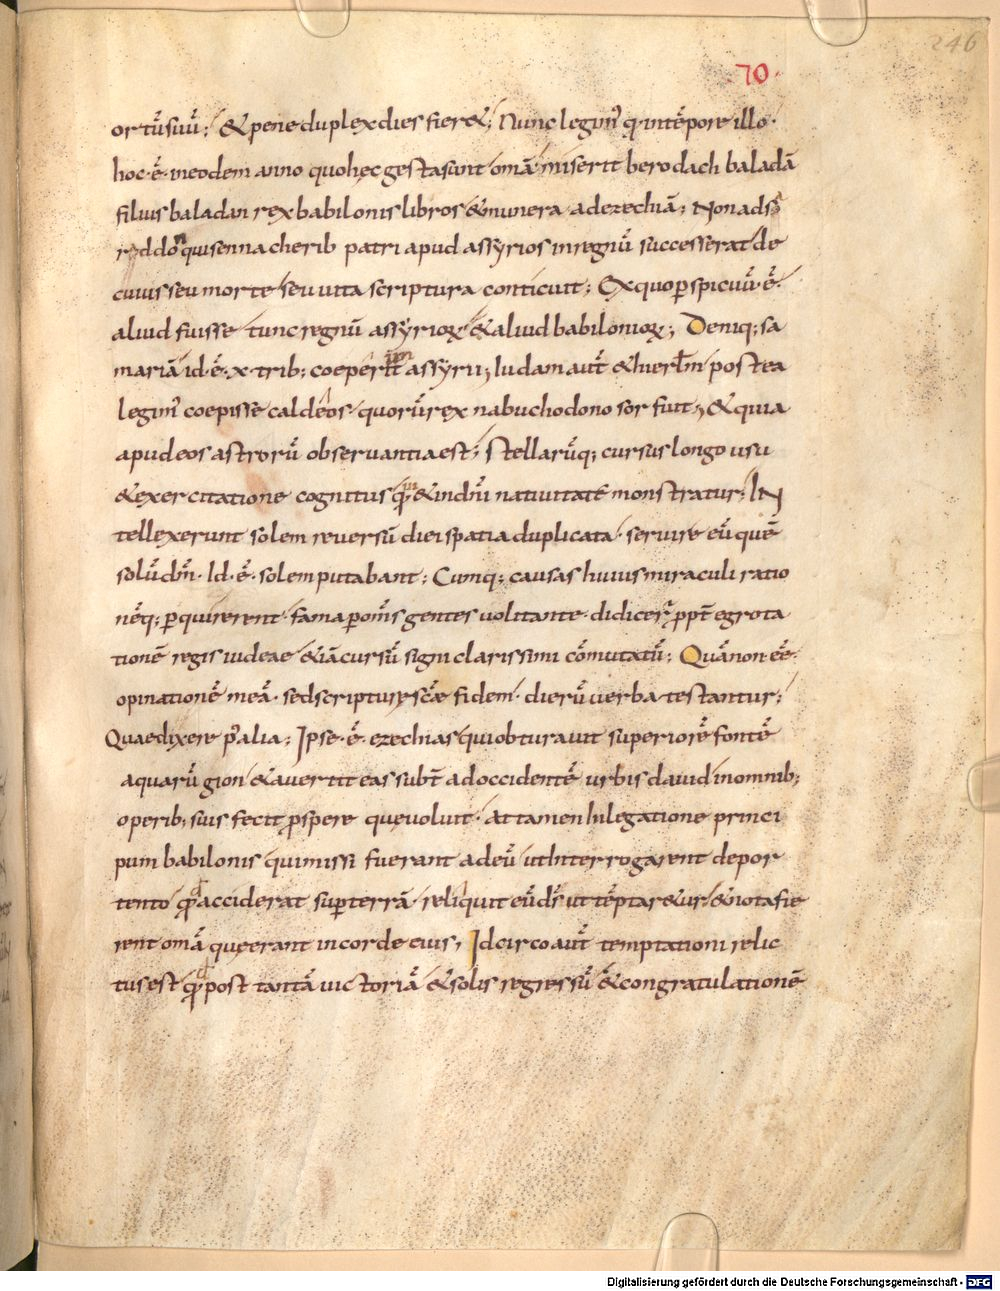 246
70
ortū suū; & pene duplex dies fier&; Nunc legim᷒ q· in tēpore illo·
hoc· ē· in eodem anno quo hęc gesta sunt omā miserit berodach baladā
filius baladan rex babilonis libros & munera ad ezechiā; Non ads
raddon qui sennacherib patri apud assyrios in regnū successerat de
cuius seu morte seu uita scriptura conticuit; Ex quo pspicuū· ē·
aliud fuisse tunc regnū assyrioꝝ & aliud babilonioꝝ; Deniq; sa
mariā id· ē· x· trib; coeperīt assyrii; Iudam aut̄ & hierlm̄ postea
legim᷒ coepisse caldeos· quorū rex nabuchodonosor fuit; & quia
apud eos astrorū obseruantia est; Stellarūq; cursus longo usu
& exercitatione cognitus & in dm̄i natiuitate monstratur; IN
tellexerunt solem reuersū diei spatia duplicata· seruire eū quē
solū dm̄· Id· ē· solem putabant; Cumq; causas huius miraculi ratio
nēq; pquirerent· fama p om̄s gentes uolitante· didicer̄ ppt̄ egrota
tionē regis iudeae & iā cursū signi clarissimi cōmutatū; Quā non· eē·
opinationē meā· sed scripturę scæ fidem· dierū uerba testantur;
Quae dixere palia; Ipse· ē· ezechias qui obturauit superiorē fontē
aquarū gion & auertit eas subt̄ ad occidentē urbis dauid in omnib;
operib; suis fecit pspere que uoluit· Attamen In legatione princi
pum babilonis qui missi fuerant ad eū ut Interrogarent de por
tento qd acciderat sup terrā· reliquit eū ds̄ ut tēptar&ur & nota fie
rent omā quę erant in corde eius; Idcirco aut̄ temptationi relic
tus est qd post tantā uictoriā & solis regressū & congratulationē
Digitalisierung gefördert durch die Deutsche Forschungsgemeinschaft - DFG